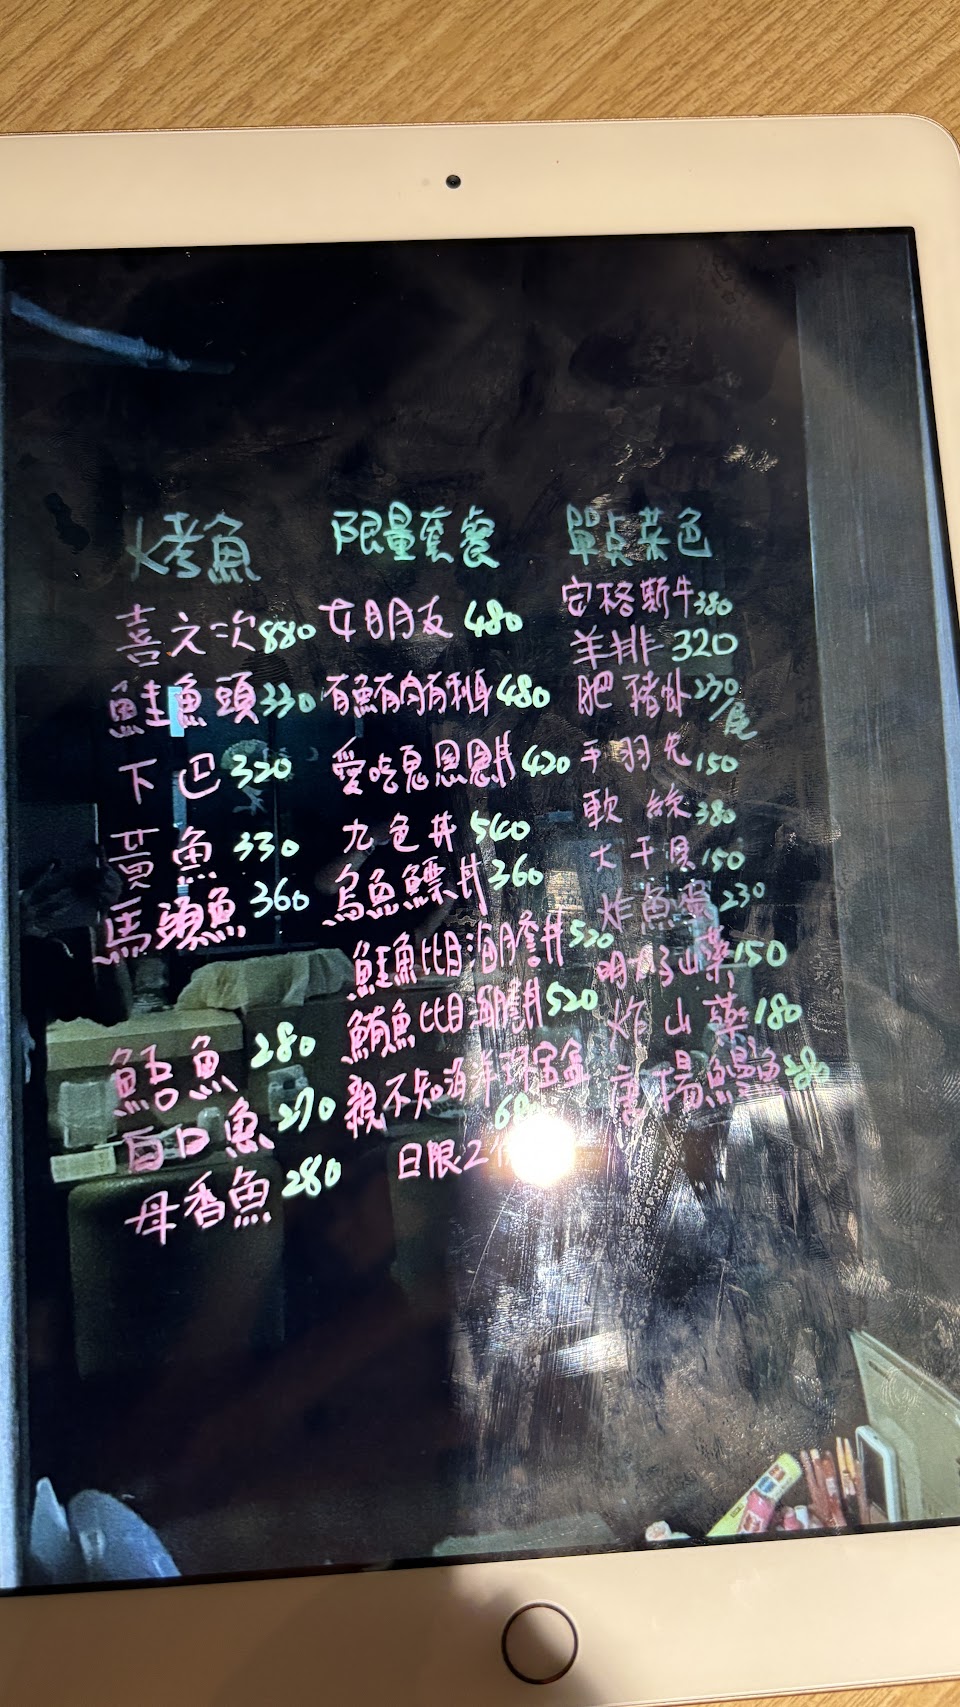 烤魚
喜之次880
鮭魚頭330
下巴320
黃魚330
馬頭魚360
鯃魚280
白口魚270
母香魚280
限量套餐
女朋友480
有魚有肉有利身480
愛吃鬼恩恩丼420
九色丼540
烏魚鰾丼360
鮭魚比目海膽丼520
鮪魚比目海膽丼520
親不知海羊珠宝盒
日限2
單点菜色
安格斯牛380
羊排320
肥豬蚪230/尾
手羽先150
軟絲380
大干貝150
炸魚蛋230
明太子山藥150
炸山藥180
唐揚鰻魚280